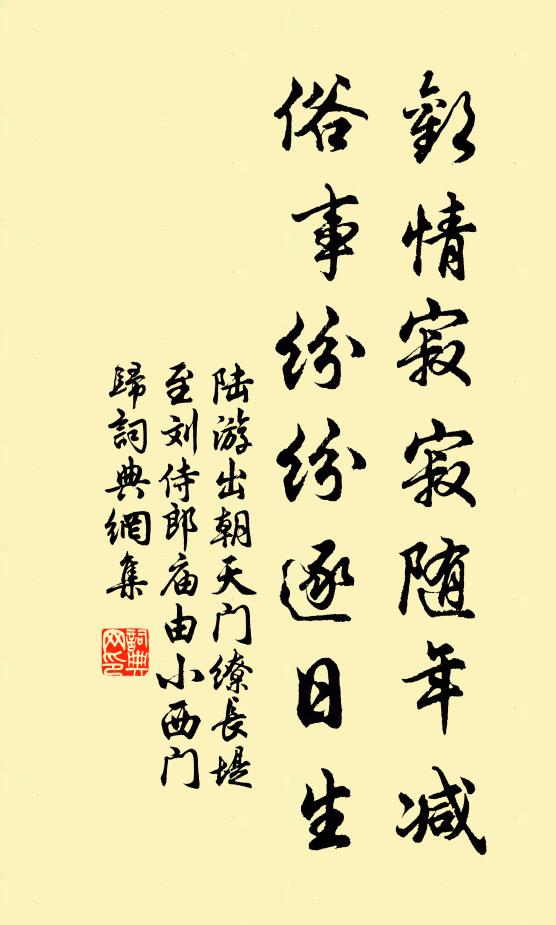 歡情寂寂随年减
俗事纷纷逐日生
陆游出朝天门缭長堤
至刘侍郎庙由小西门
歸詞典網集
詞典
网印